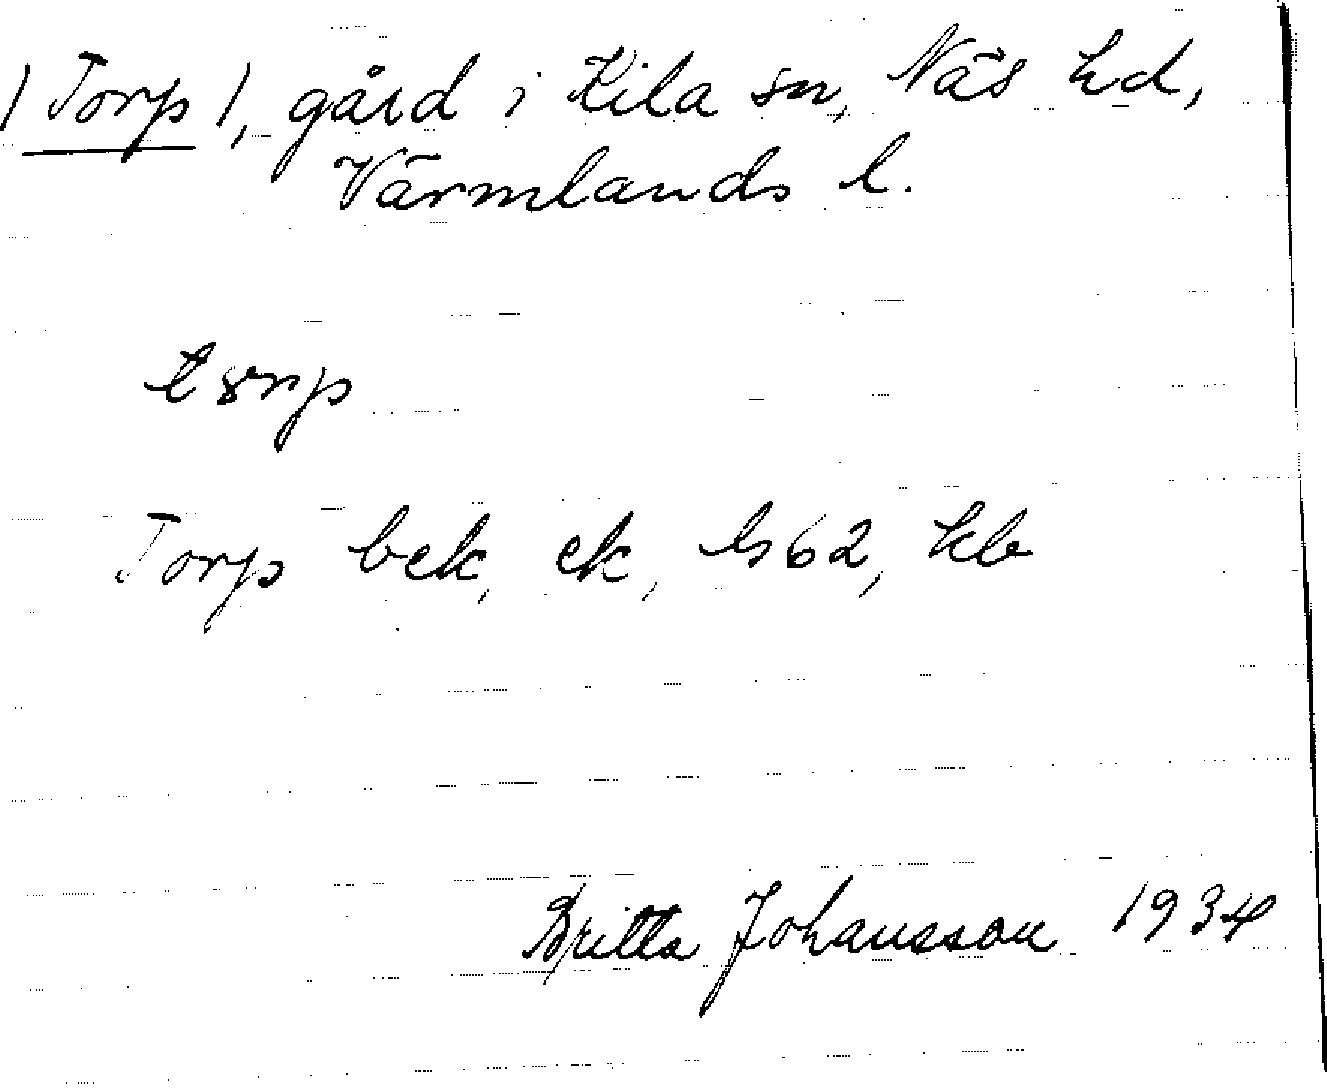 /Torp/, gård i Kila sn, Näs hd,
Värmlands l.
Torp bek, ek, ls62, kb
Britta Johansson 1934